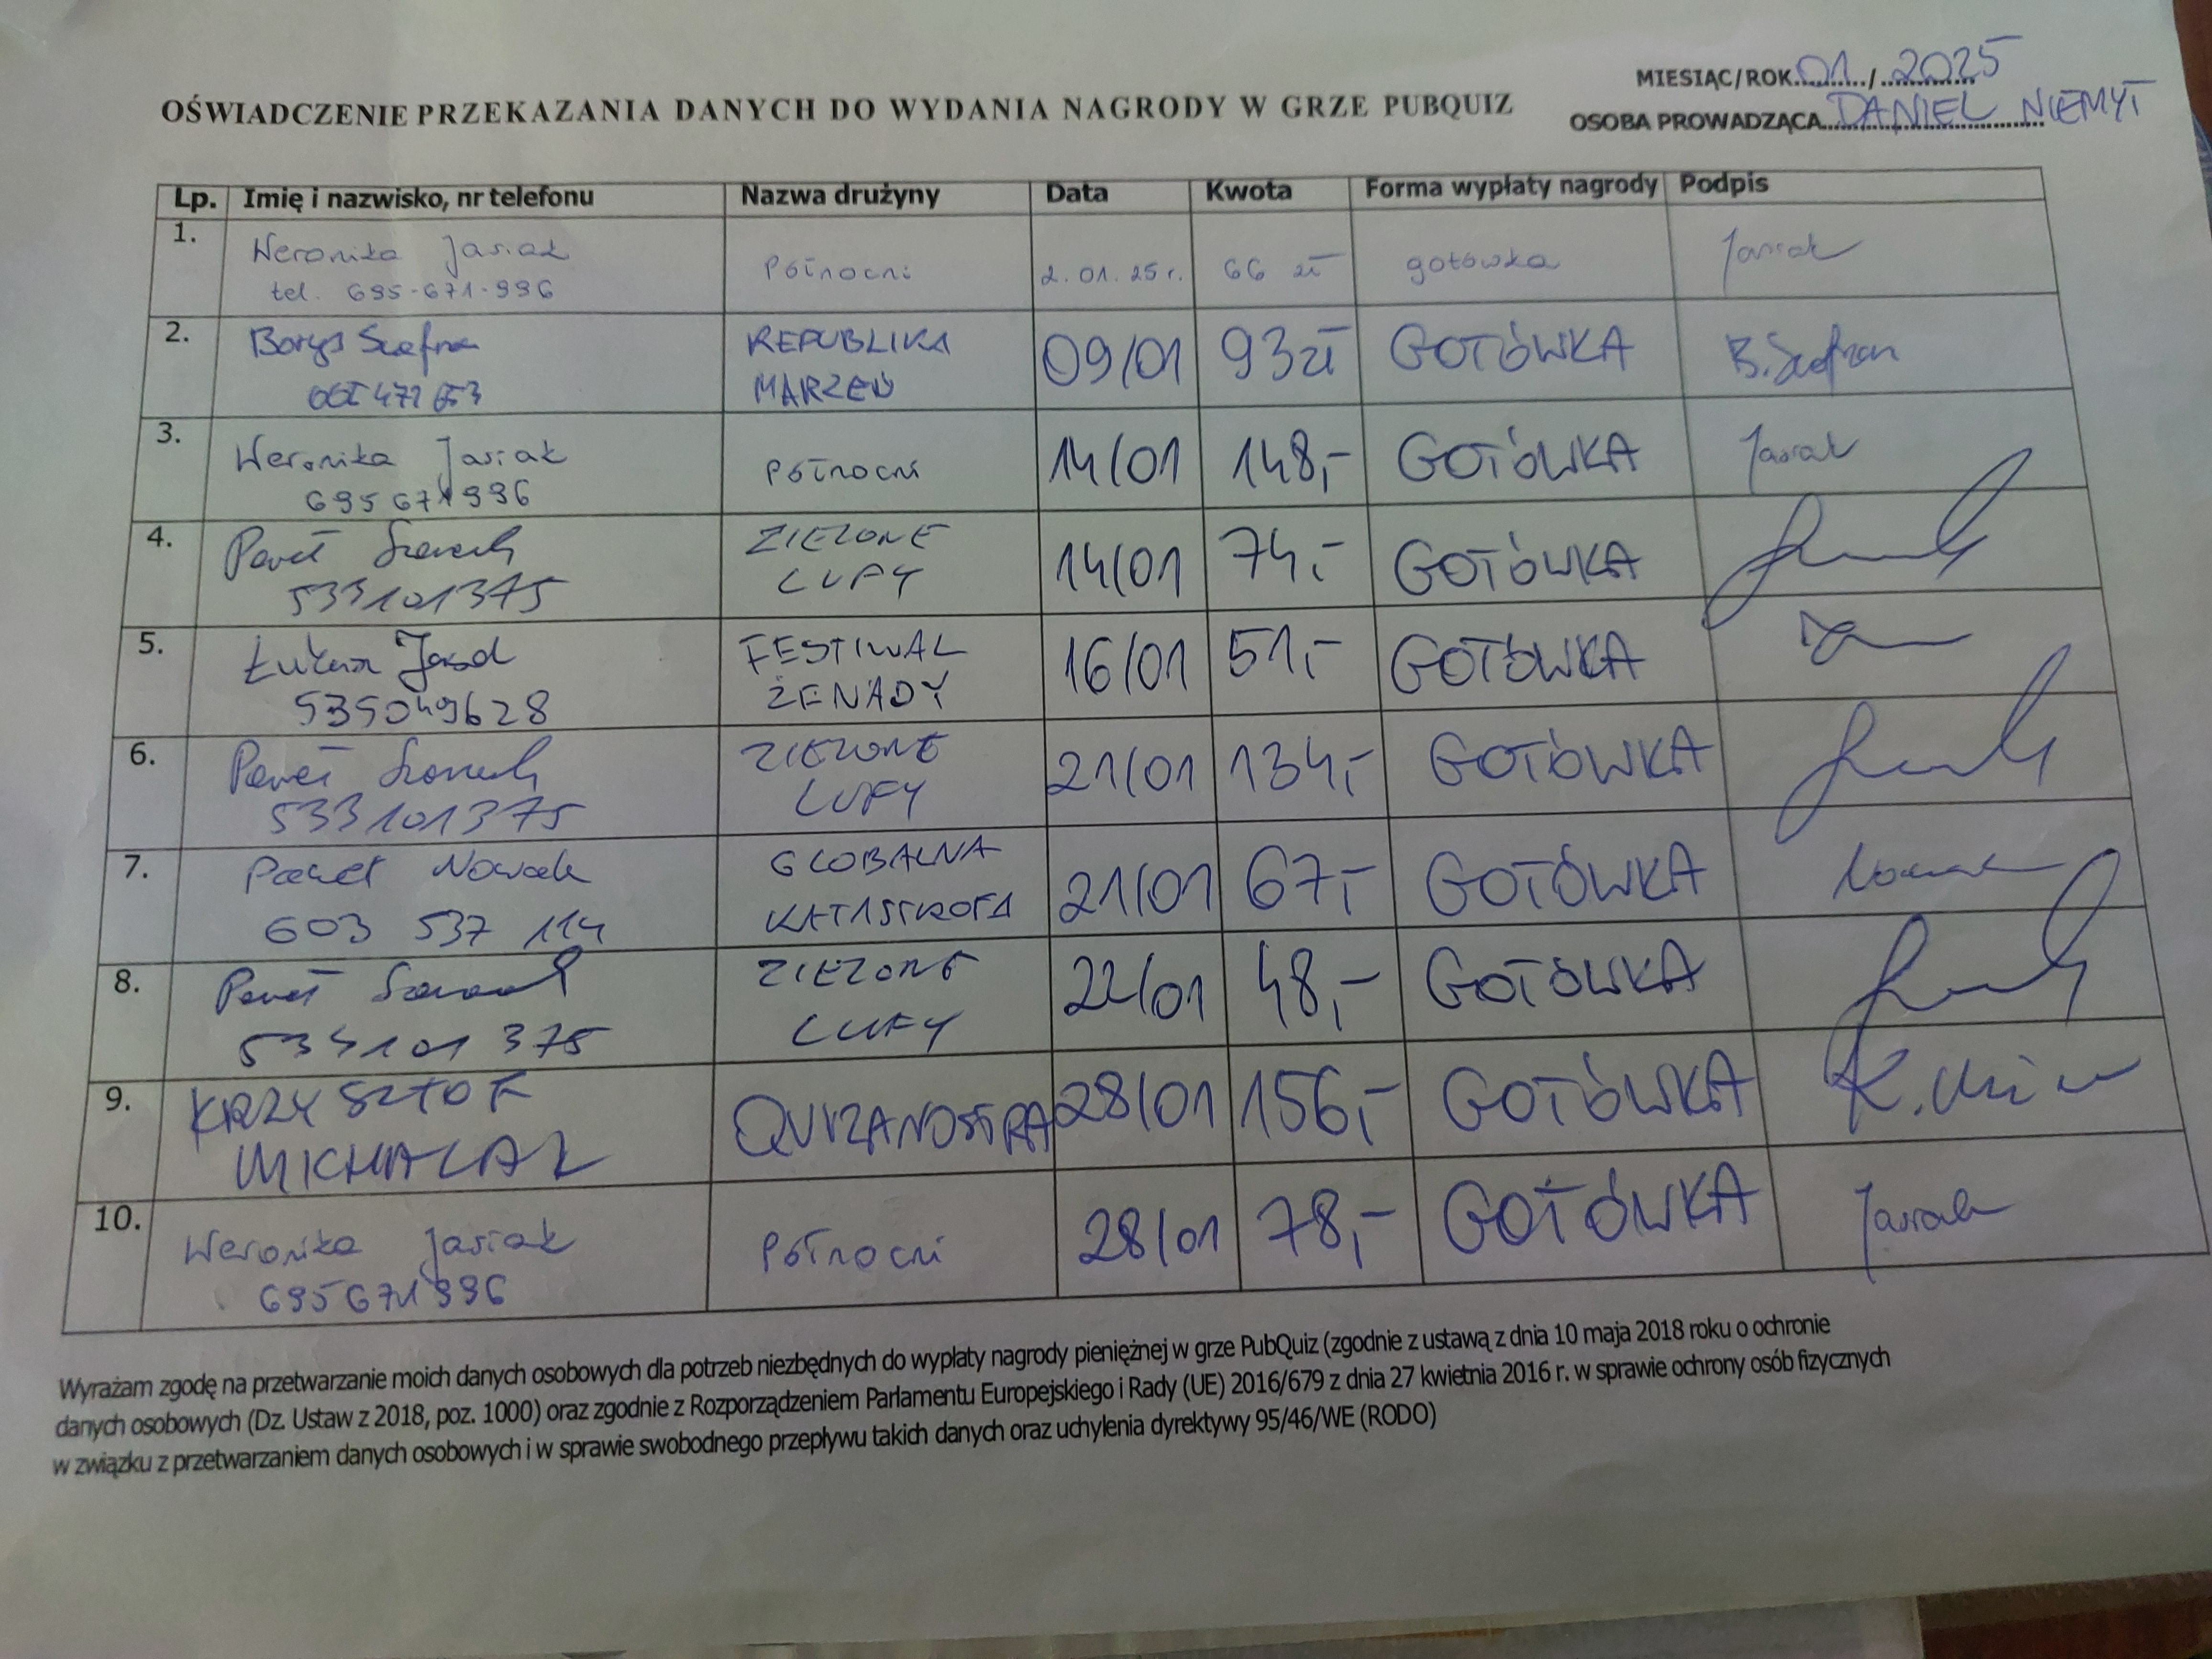 MIESIĄC/ROK 01 / 2025
OŚWIADCZENIE PRZEKAZANIA DANYCH DO WYDANIA NAGRODY W GRZE PUBQUIZ
OSOBA PROWADZĄCA DANIEL NIEMYT
Lp. Imię i nazwisko, nr telefonu Nazwa drużyny Data Kwota Forma wypłaty nagrody Podpis
1. Weronika Jasiak Północni 2.01.25 r. 66 zł gotówka Jasiak
tel. 695-671-996
2. Borys Szafran REPUBLIKA 09/01 93 zł GOTÓWKA B. Szafran
MARZEŃ
3. Weronika Jasiak Północni 14/01 148,- GOTÓWKA Jasiak
695671996
4. Paweł ZIELONE 14/01 74,- GOTÓWKA
533101375 LUFY
5. Łukasz FESTIWAL 16/01 51,- GOTÓWKA
535049628 ŻENADY
6. Paweł ZIELONE 21/01 134,- GOTÓWKA
533101375 LUFY
7. Paweł Nowak GLOBALNA 21/01 67,- GOTÓWKA Nowak
603 537 114 KATASTROFA
8. Paweł ZIELONE 22/01 48,- GOTÓWKA
533101375 LUFY
9. KRZYSZTOF QUIZANOSTRA 28/01 156,- GOTÓWKA
MICHALAK
10. Weronika Jasiak Północni 28/01 78,- GOTÓWKA Jasiak
695671996
Wyrażam zgodę na przetwarzanie moich danych osobowych dla potrzeb niezbędnych do wypłaty nagrody pieniężnej w grze PubQuiz (zgodnie z ustawą z dnia 10 maja 2018 roku o ochronie
danych osobowych (Dz. Ustaw z 2018, poz. 1000) oraz zgodnie z Rozporządzeniem Parlamentu Europejskiego i Rady (UE) 2016/679 z dnia 27 kwietnia 2016 r. w sprawie ochrony osób fizycznych
w związku z przetwarzaniem danych osobowych i w sprawie swobodnego przepływu takich danych oraz uchylenia dyrektywy 95/46/WE (RODO)